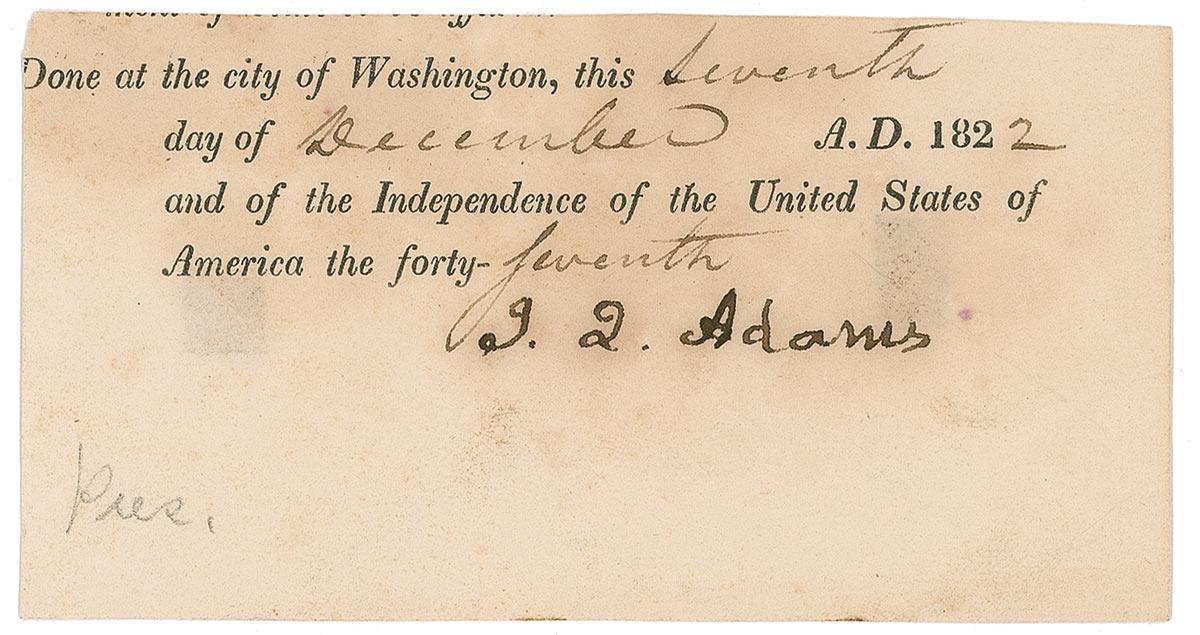 Done at the city of Washington, this Seventh
day of December A. D. 1822
and of the Independence of the United States of
America the forty-seventh
J. Q. Adams
Pres.